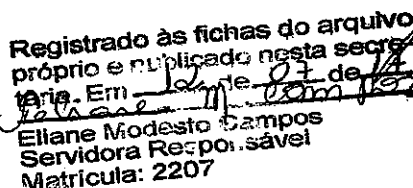 Registrado às fichas do arquivo
próprio e publicado nesta secre
taria. Em de 07 de 17
Eliane Modesto Campos
Servidora Responsável
Matrícula: 2207